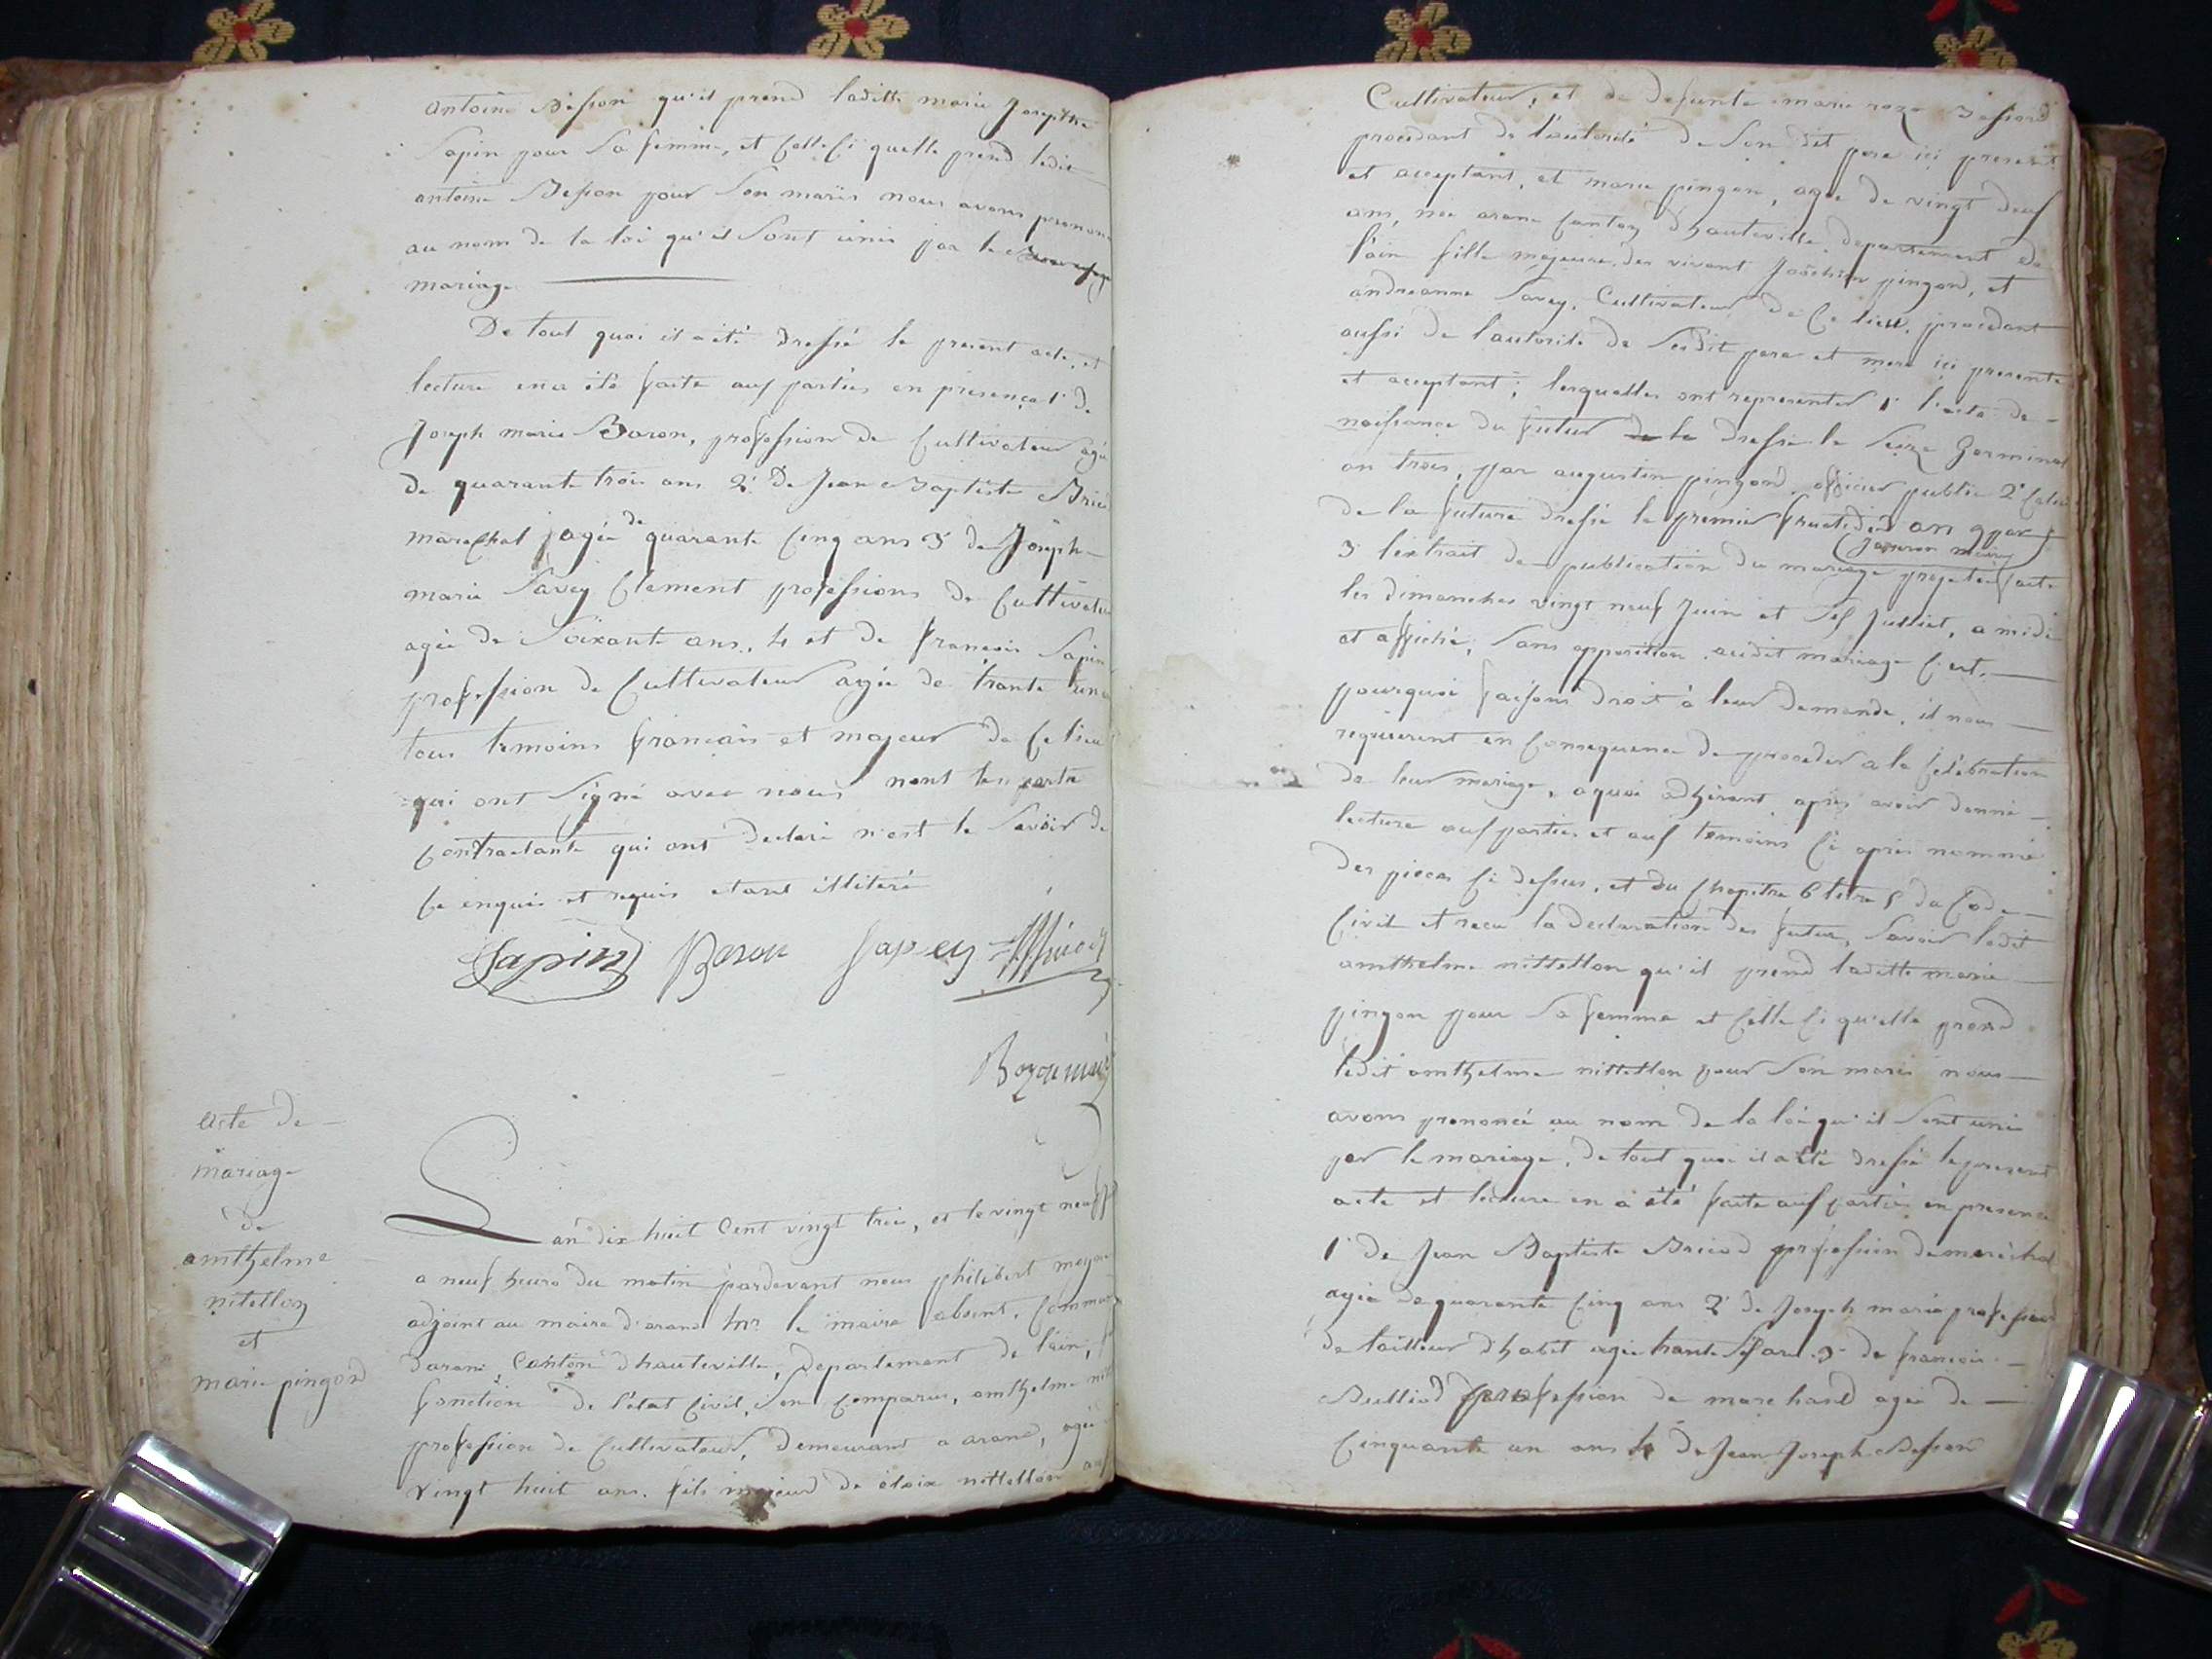 antoine Besson qu'il prend laditte marie Josephte
Sapin pour Sa femme, et Celle Ci quelle prend ledit
antoine Besson pour Son mariis nous avons pronon
au nom de la loi qu'il Sont unis par le
mariage
De tout quoi il a été dressé le present acte, et
lecture en a été faite aux parties en presence 1° de
Joseph marie Boron, profession de Cultivateur agé
de quarante trois ans 2° De Jean Baptiste Brico
marechal agée de quarante Cinq ans 3° de Joseph
marie Savey Clement professions de Cultivateu
agée de Soixante ans, 4 et de françois Sapin
profession de Cultivateur agée de trante un
tous temoins français et majeur de Ce lieu
qui ont Signé avec nous nont les partie
Contractante qui ont declaré n'est le Savoir de
Ce enquis et requis etant illiteré
Sapin Boron Sapey
Acte de
mariage
de
amthelme
nitellon
et
marie pingond
L'an dix huit Cent vingt trois, et le vingt neuf
a neuf heure du matin pardevant nous philibert
adjoint au maire d'arand mr. le maire absent, Commun
darand, Canton dhauteville, departement de l'ain,
fonction de l'état Civil, Son Comparus, amthelme nit
profession de Cultivateur, demeurant a arand, agé
vingt huit ans, fils majeur de éloix nittellon
Cultivateur, et de defunte marie roze Besson
procedant de l'autorité de Son dit pere ici present
et acceptant, et marie pingon, agée de vingt deux
ans, née arand Canton dhauteville, departement de
l'ain fille majeure des vivant Joachim pingond, et
andreanne Savey, Cultivateur de Ce lieu, procedant
aussi de l'autorité de Sesdit pere et mere ici presente
et acceptant; lesquelles ont representer 1° l'acte de
naissance du futur de la dressé le Seize Germinal
an trois, par augustin pingond officier public 2°
de la future dressé le premier fructidor an 9 par
Janron maire
3° l'extrait de publication du mariage projetée faite
les dimanches vingt neuf Juin et Six Julliet, a midi
et affiché, Sans opposition audit mariage C'est
pourquoi faisons droit à leur demande, il nous
requierent en Consequence de proceder a la Celebration
de leur mariage, a quoi adhérant, après avoir donné
lecture aux parties et aux temoins Ci après nommé
des pieces Ci dessus, et du Chapitre 6 titre 5 du Code
Civil et recu la declaration des futur, Savoir ledit
amthelme nittellon qu'il prend laditte marie
pingon pour Sa femme et Celle Ci qu'elle prend
ledit amthelme nittellon pour Son maris nous
avons prononcé au nom de la loi qu'il Sont unis
par le mariage, de tout quoi il a été dressé le present
acte et lecture en a été faite aux parties en presence
1° de Jean Baptiste Bricod profession de maréchal
agée de quarante Cinq ans 2° de Joseph marie profession
de tailleur d'habit agée trante Six ans 3° de françois
Bulliod profession de marchand agée de
Cinquante un ans 4 de Jean Joseph Besson